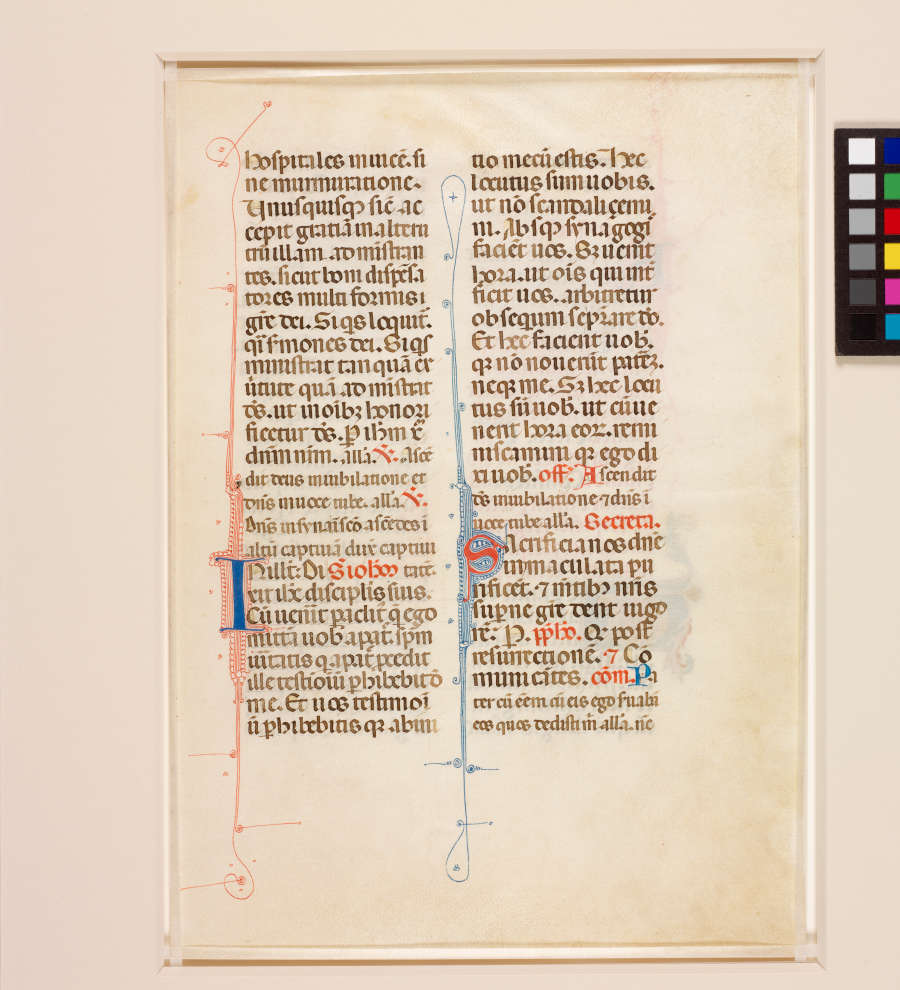 hospitales inuicē. si
ne murmuratione.
Vnusquisq; sic̄ ac
cepit gratiā in alteru
trū illam administran
tes. sicut boni dispēsa
tores multiformis i
gr̄e dei. Siq̄s loquit̄.
q̄i s̄mones dei. Siqs
ministrat tanquā ex
uitute quā administrat
d̄s. ut in oib; honori
ficetur d̄s. P ih̄m x̄
dn̄m nr̄m. all̄a. V. Ascē
dit deus in iubilatione et
dn̄s in uoce tube. all̄a. V.
Dn̄s in syna in sc̄o ascēdēs ī
altū captiuā dux captiui
In ill̄ t̄: Di S ioh̄m
xit ih̄c discipl̄is suis.
Cū uen̄it paclit̄ q̄ ego
mittā uob̄ a pat̄. sp̄m
uītatis q̄ a pat̄ p̄cedit
ille testioīū phibebit d̄
me. Et uos testimoī
ū phibebitis qr ab ini
tio mecū estis. hec
locutus sum uobis.
ut nō scandaliçemi
ni. Absq; synagogi
faciēt uos. S; uenit
hora. ut oīs qui int̄
ficit uos. arbitretur
obsequium se p̄tare d̄o.
Et hec facient uob̄.
qr nō nouerīt patrē;.
neq; me. S; hec locu
tus sū uob̄. ut cū ue
nerit hora eor̄. remi
niscamini qr ego di
xi uob̄. off̄. Ascendit
d̄s in iubilatione ⁊ dn̄s ī
uoce tube all̄a. Secreta.
Sacrificia nos dn̄e
īmaculata pu
rificēt. ⁊ mītib; nr̄is
supne gr̄e dent uigo
rē. P. pp̄hō. Qr post̄
resurrectionē. ⁊ Cō
municātes. cōm. Pa
ter cū eēm cū eis ego s̄uabā
eos quos dedisti m̄ all̄a. nc̄